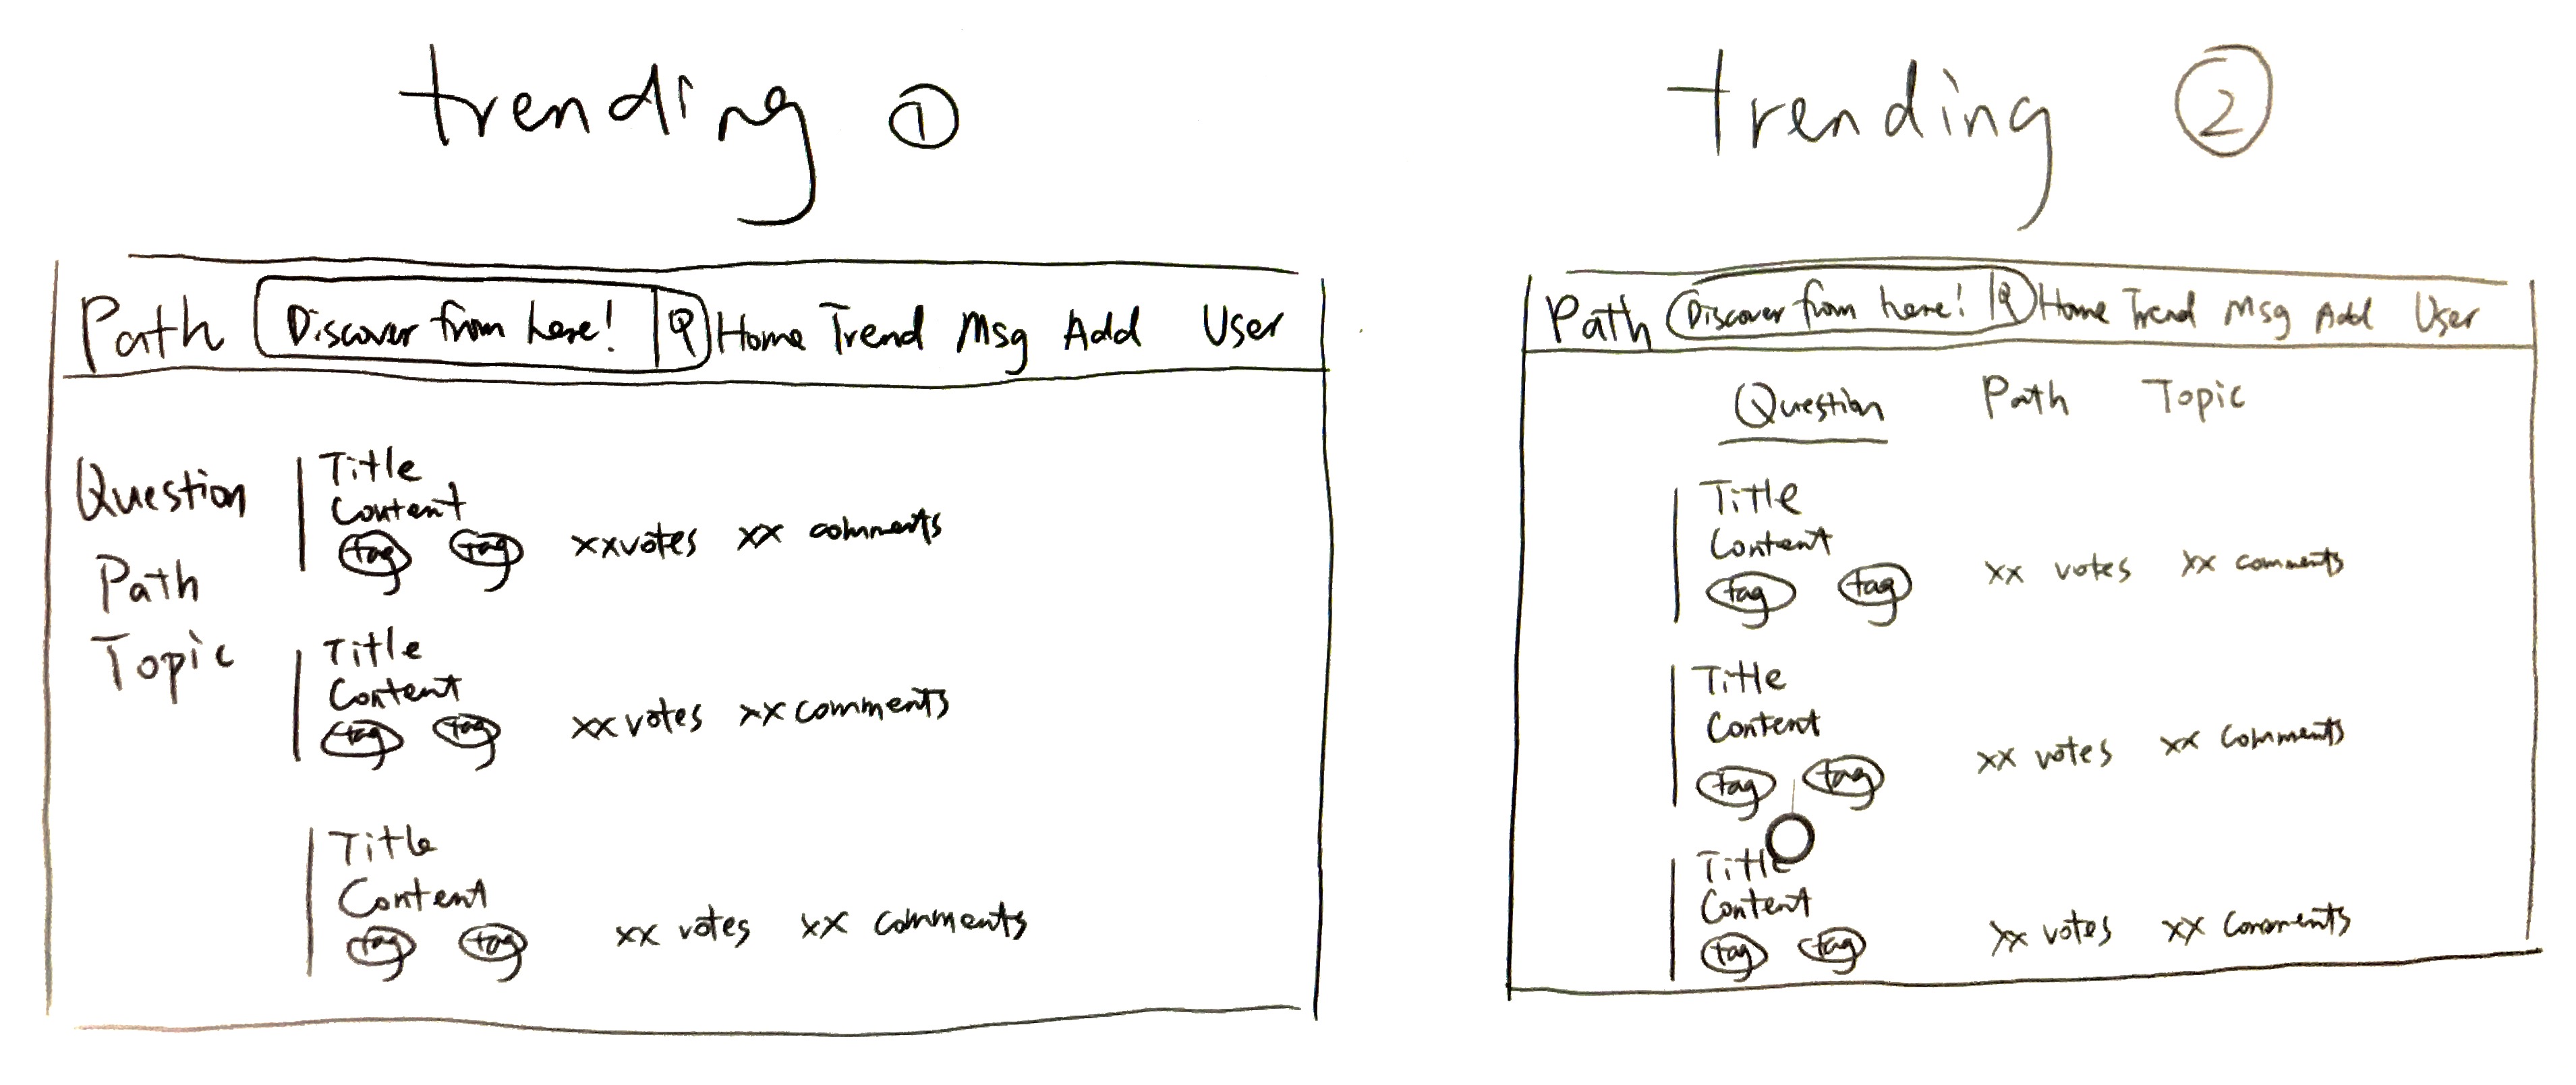 trending ①
Path Discover from here! Home Trend Msg Add User
Question
Path
Topic
Title
Content
tag tag xx votes xx comments
Title
Content
tag tag xx votes xx comments
Title
Content
tag tag xx votes xx comments
trending ②
Path Discover from here! Home Trend Msg Add User
Question Path Topic
Title
Content
tag tag xx votes xx comments
Title
Content
tag tag xx votes xx comments
Title
Content
tag tag xx votes xx comments